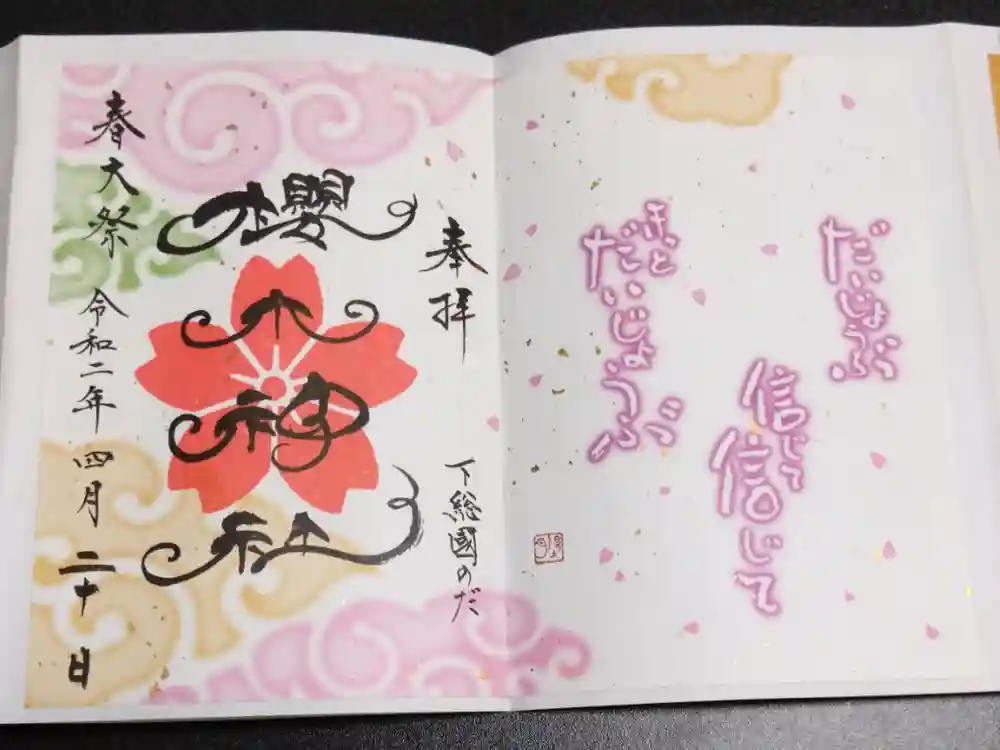 だいじょうぶ
信じて
信じて
きっと
だいじょうぶ
奉拝
下総國のだ
櫻木神社
春大祭
令和二年四月二十日